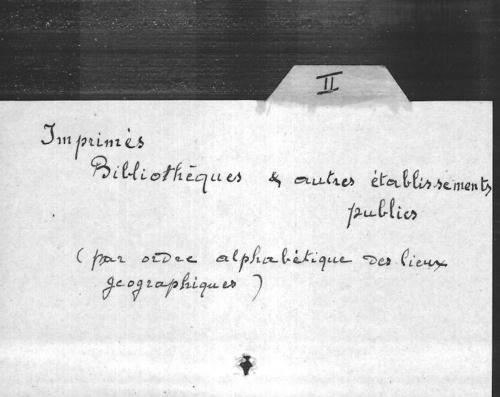 II
Imprimés
Bibliothèques & autres établissements
publics
(par ordre alphabétique des lieux
géographiques)